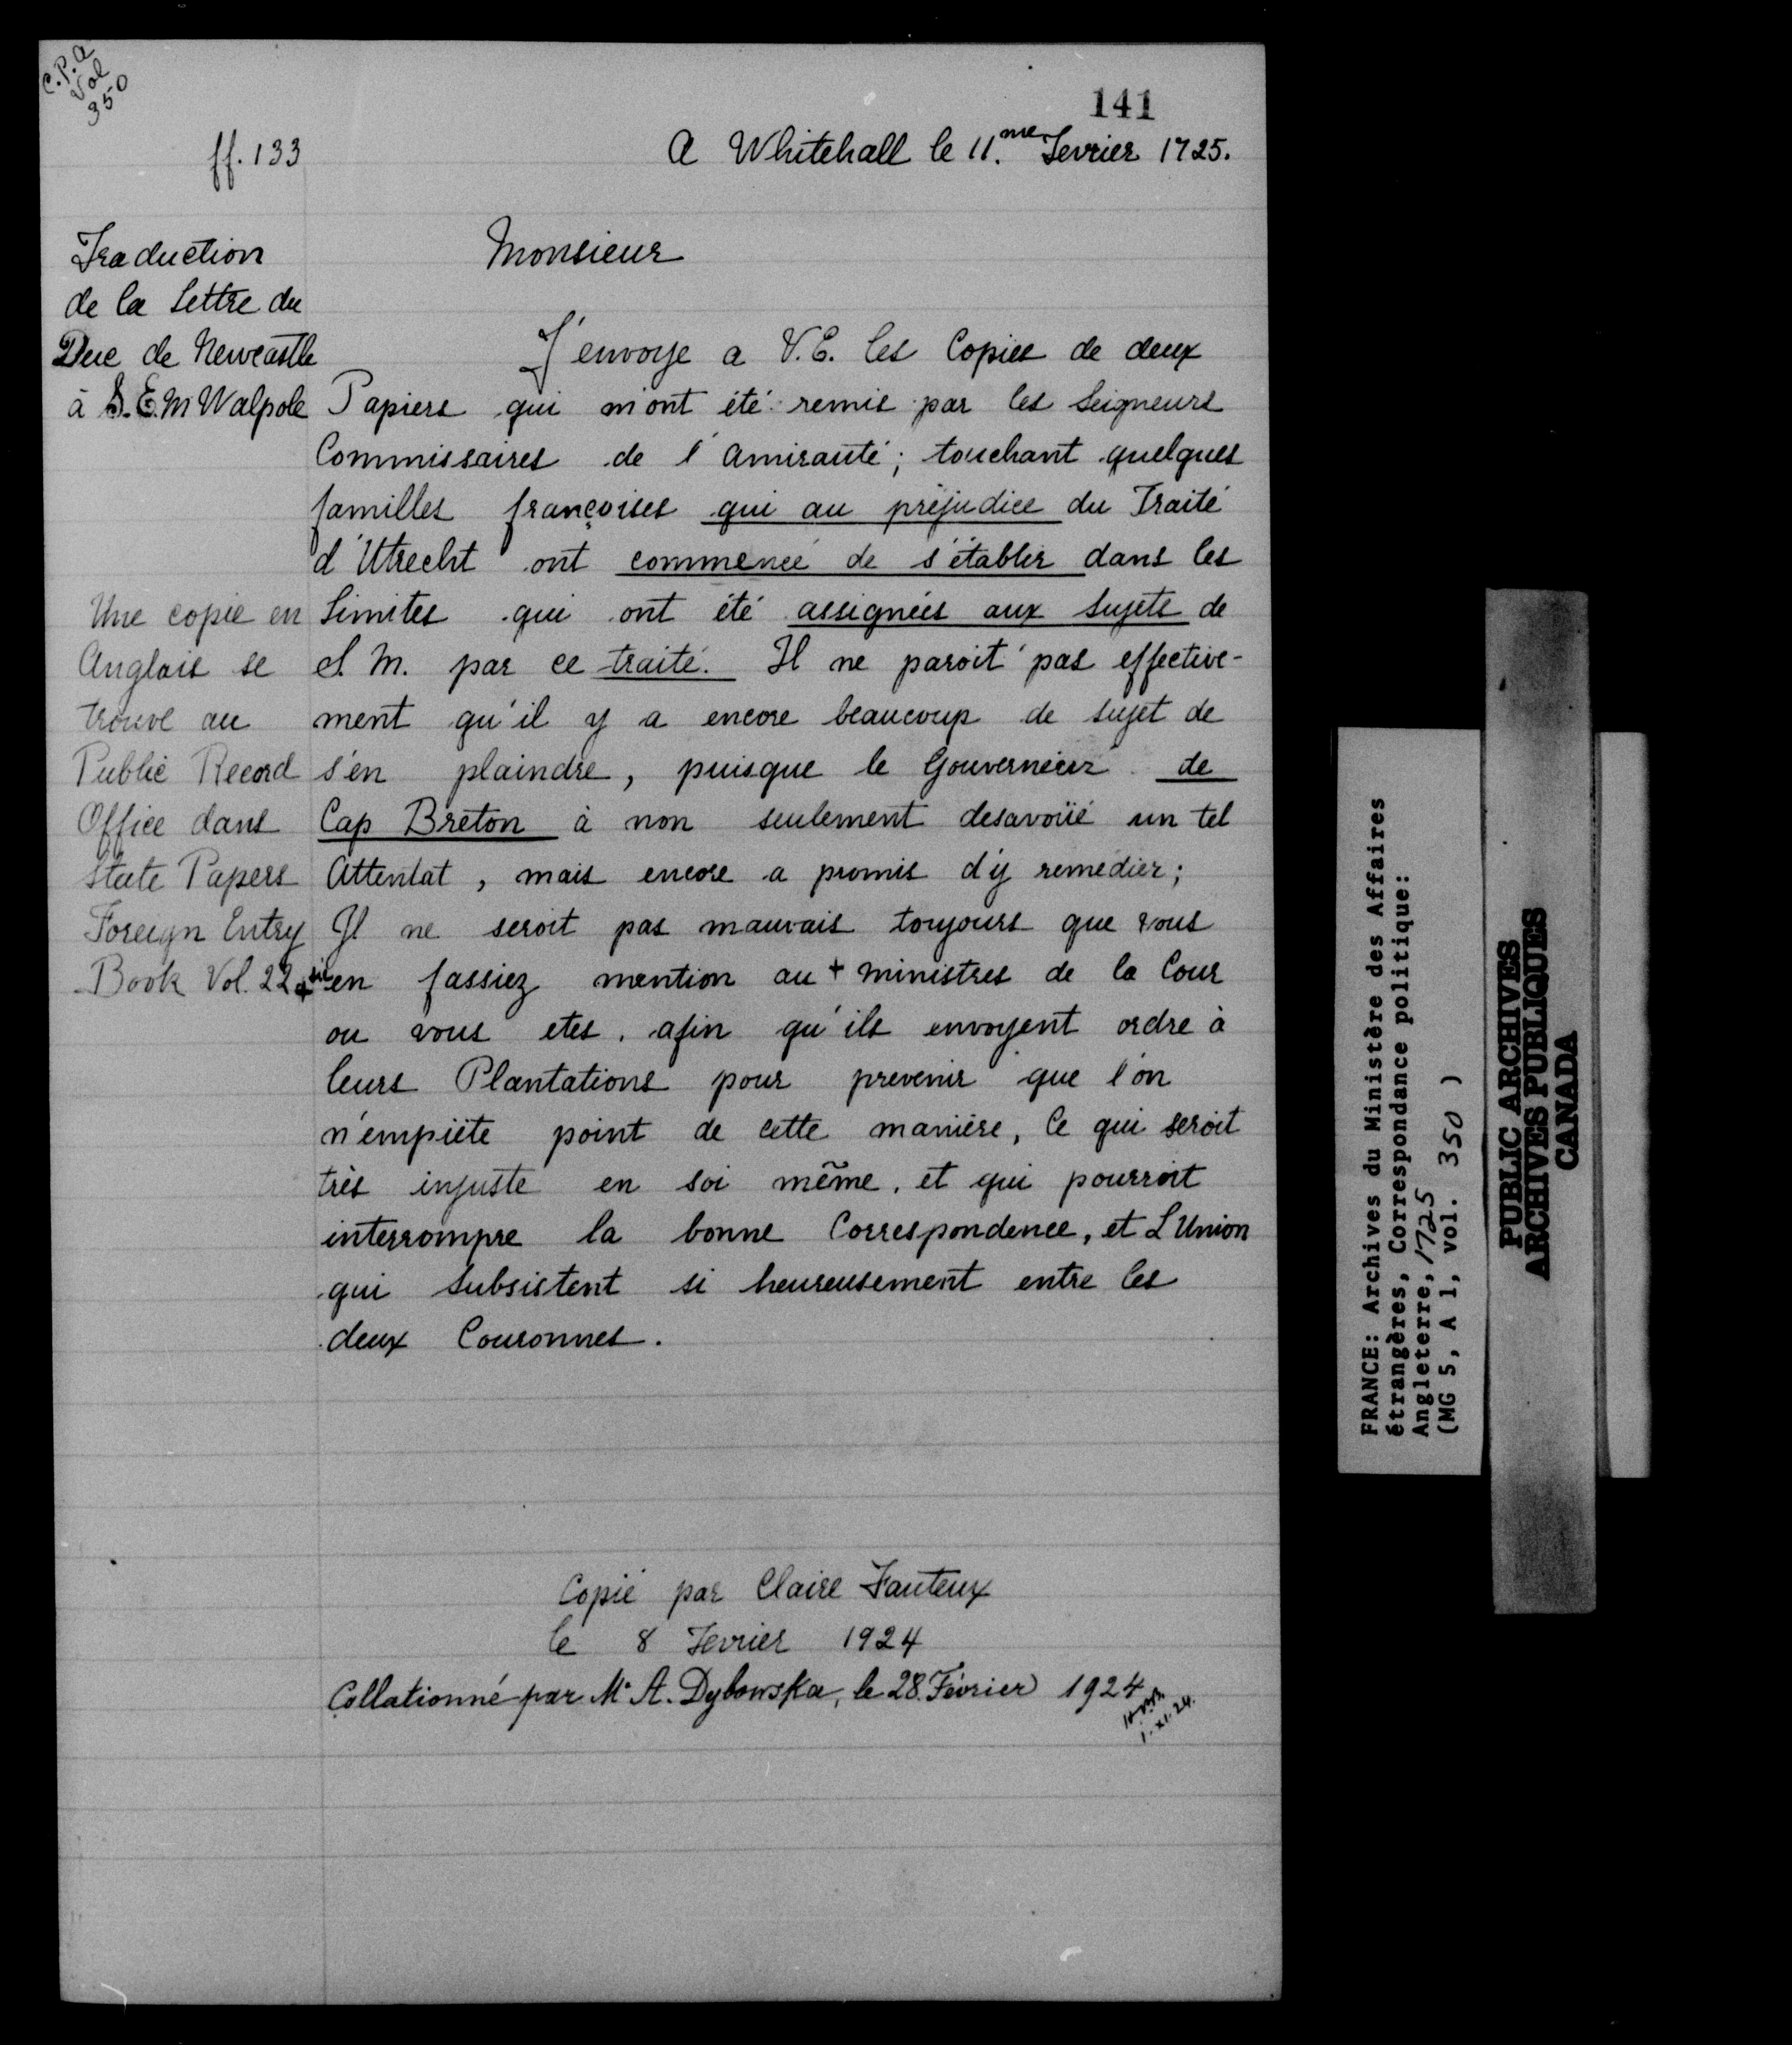 C.P.A
Vol
350
141
ff. 133
A Whitehall le 11.me Fevrier 1725.
Traduction
de la Lettre du
Duc de Newcastle
à S.E. Mr Walpole
Monsieur
J'envoye a V.E. les Copies de deux
Papiers qui m'ont été remis par les Seigneurs
Commissaires de l'Amirauté; touchant quelques
familles françoises qui au préjudice du Traité
d'Utrecht ont commencé de s'établir dans les
Limites qui ont été assignées aux Sujets de
S. M. par ce traité. Il ne paroit pas effective-
ment qu'il y a encore beaucoup de sujet de
s'en plaindre, puisque le Gouverneur de
Cap Breton à non seulement desavoüé un tel
Attentat, mais encore a promis d'y remedier;
Il ne seroit pas mauvais toujours que vous
en fassiez mention au + ministres de la Cour
ou vous etes. afin qu'ils envoyent ordre à
leurs Plantations pour prevenir que l'on
n'empiète point de cette manière, Ce qui seroit
très injuste en soi même, et qui pourroit
interrompre la bonne Correspondence, et L'Union
qui Subsistent si heureusement entre les
deux Couronnes.
Une copie en
Anglais se
trouve au
Public Record
Office dans
State Papers
Foreign Entry
Book Vol. 22
+ sic
Copié par Claire Fauteux
le 8 Fevrier 1924
Collationné par M. A. Dybowska, le 28 Février 1924
1.XI.24.
FRANCE: Archives du Ministère des Affaires
étrangères, Correspondance politique:
Angleterre, 1725
(MG 5, A 1, vol. 350 )
PUBLIC ARCHIVES
ARCHIVES PUBLIQUES
CANADA